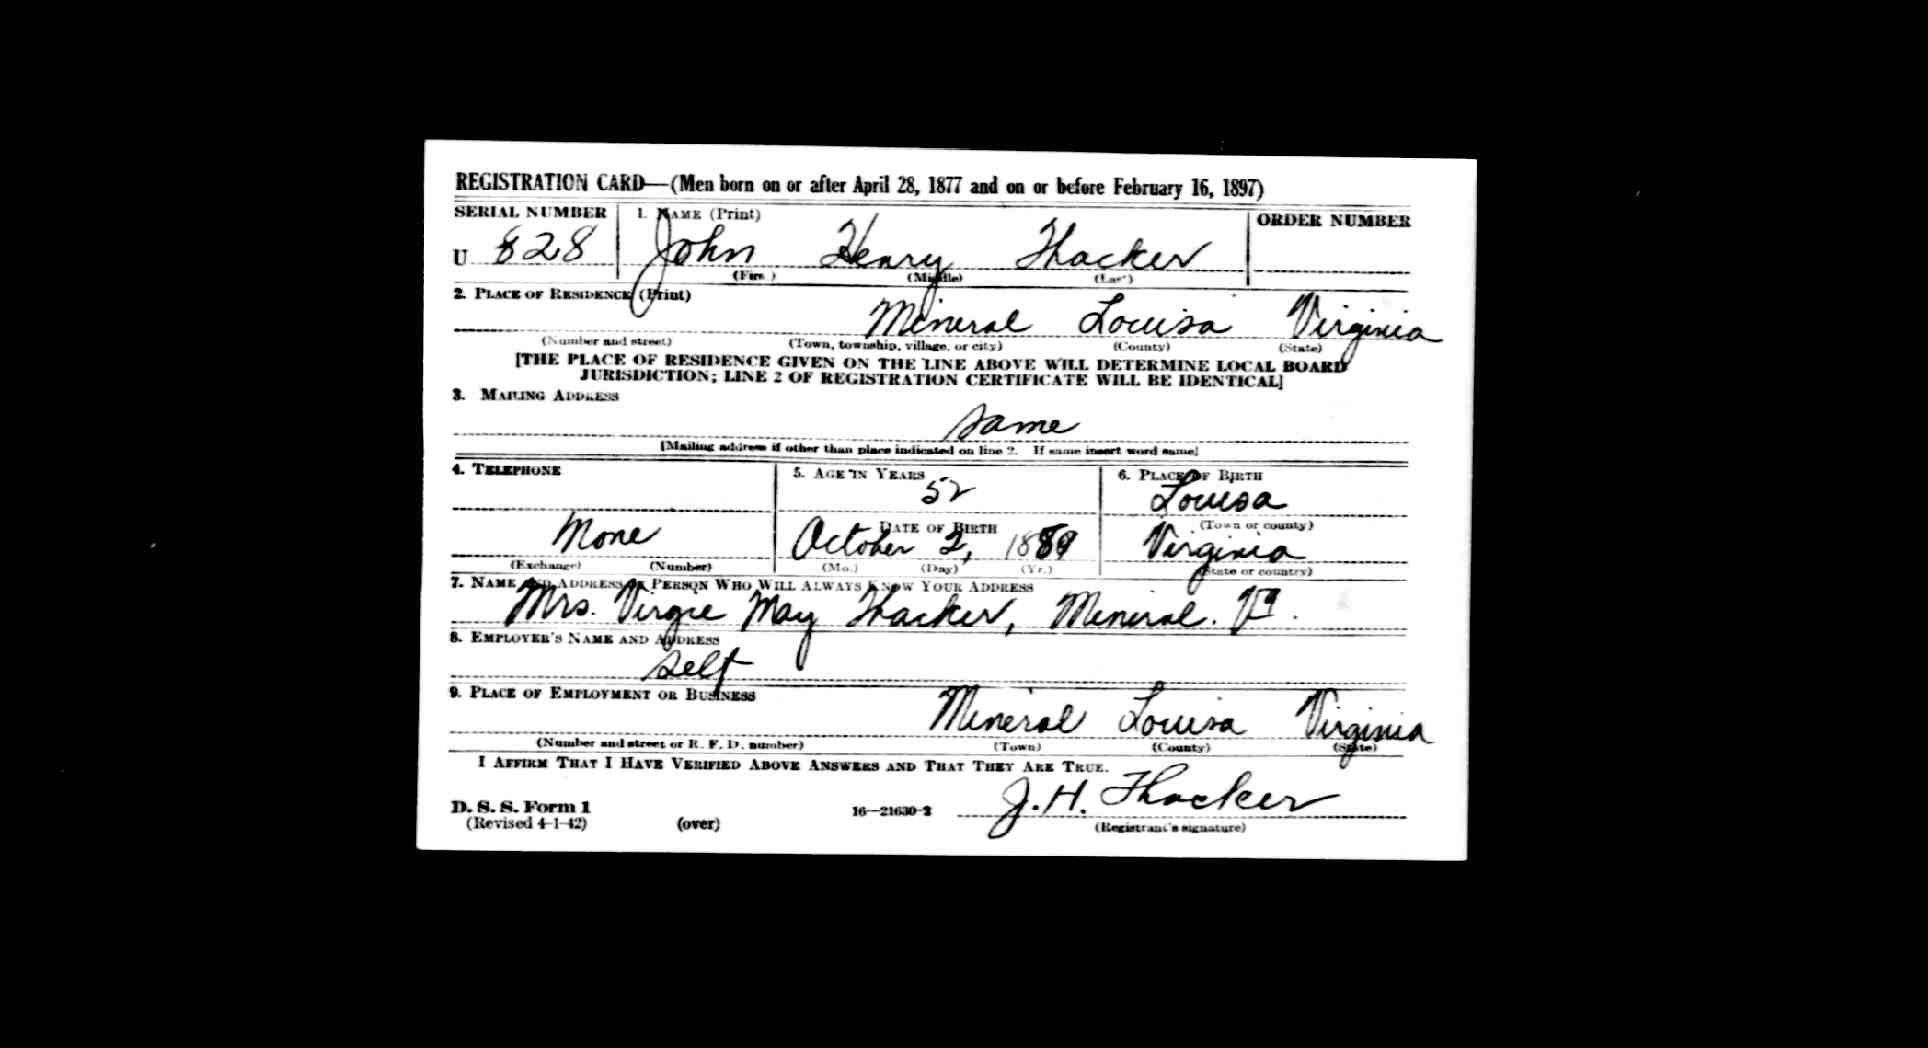 REGISTRATION CARD—(Men born on or after April 28, 1877 and on or before February 16, 1897)
SERIAL NUMBER 1. NAME (Print) ORDER NUMBER
U 828 John Henry Thacker
(First) (Middle) (Last)
2. PLACE OF RESIDENCE (Print)
Mineral Louisa Virginia
(Number and street) (Town, township, village, or city) (County) (State)
[THE PLACE OF RESIDENCE GIVEN ON THE LINE ABOVE WILL DETERMINE LOCAL BOARD
JURISDICTION; LINE 2 OF REGISTRATION CERTIFICATE WILL BE IDENTICAL]
3. MAILING ADDRESS
Same
[Mailing address if other than place indicated on line 2. If same insert word same]
4. TELEPHONE 5. AGE IN YEARS 6. PLACE OF BIRTH
52 Louisa
DATE OF BIRTH (Town or county)
None October 2, Virginia
(Exchange) (Number) (Mo.) (Day) (Yr.) (State or country)
7. NAME AND ADDRESS OF PERSON WHO WILL ALWAYS KNOW YOUR ADDRESS
Mrs. Virgie May Thacker, Mineral. Va.
8. EMPLOYER'S NAME AND ADDRESS
Self
9. PLACE OF EMPLOYMENT OR BUSINESS
Mineral Louisa Virginia
(Number and street or R. F. D. number) (Town) (County) (State)
I AFFIRM THAT I HAVE VERIFIED ABOVE ANSWERS AND THAT THEY ARE TRUE.
J. H. Thacker
D. S. S. Form 1
(Revised 4-1-42) (over) 16—21630-2 (Registrant's signature)